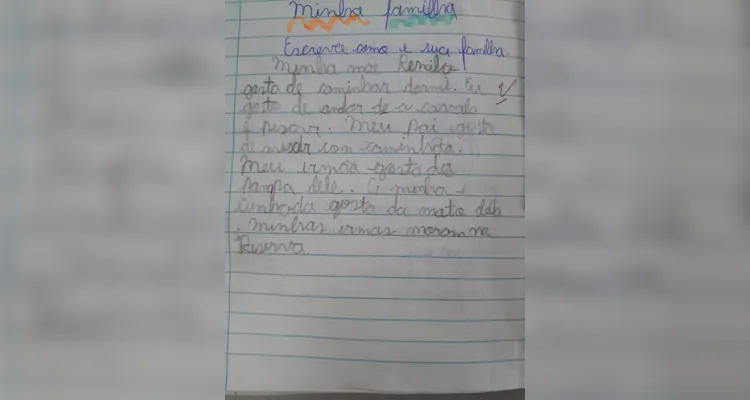 Minha familha
Escreva como é sua familha.
Minha mãe Renilce
gosta de caminhar dormi. Eu
gosto de andar de a cavalo
e pescar. Meu pai gosta
de mexer com caminhão.
Meu irmão gosta da
pampa dele. A minha
cunhada gosta da moto dela
. minhas irmas moram na
Reserva